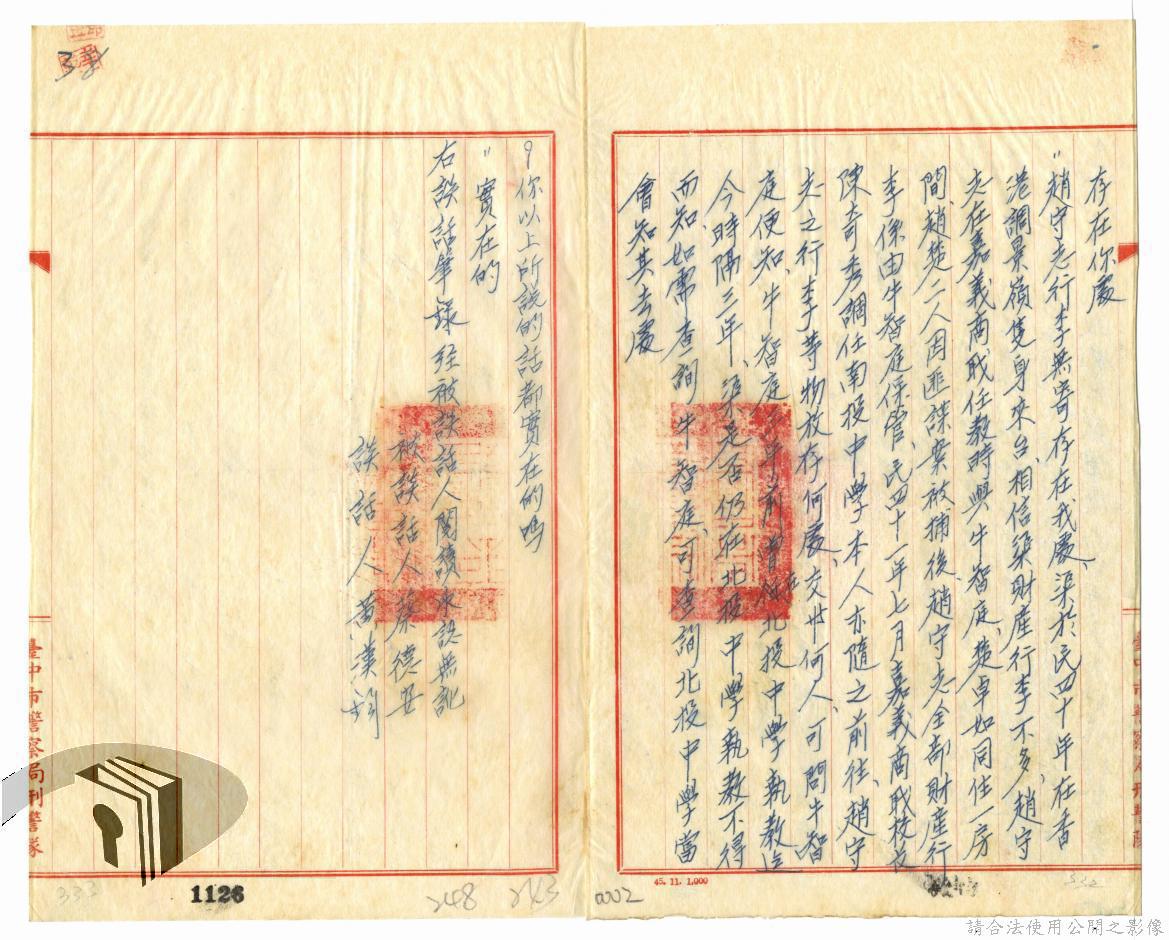 存在你處
〃趙守志行李無寄存在我處、渠於民四十年在香
港調景嶺隻身來台、相信渠財產行李不多、趙守
志在嘉義商職任教時與牛智庭、楚卓如同住一房
間、趙楚二人因匪諜案被捕後、趙守志全部財產行
李係由牛智庭保管、民四十一年七月嘉義商職校長
陳奇秀調任南投中學本人亦隨之前往、趙守
志之行李等物放存何處、交廿何人、可問牛智
庭便知、牛智庭三年前曾任在北投中學執教迄
今時隔三年、渠是否仍在北投中學執教不得
而知、如需查詢牛智庭、可查詢北投中學當
會知其去處
臺中市警察局刑警隊
45. 11. 1,000
332
0002
?你以上所說的話都實在的嗎
〃實在的
右談話筆錄經被談話人閱讀承認無訛
被談話人 蔡德安
談話人 黃漢
臺中市警察局刑警隊
333
1126
248
243
請合法使用公開之影像